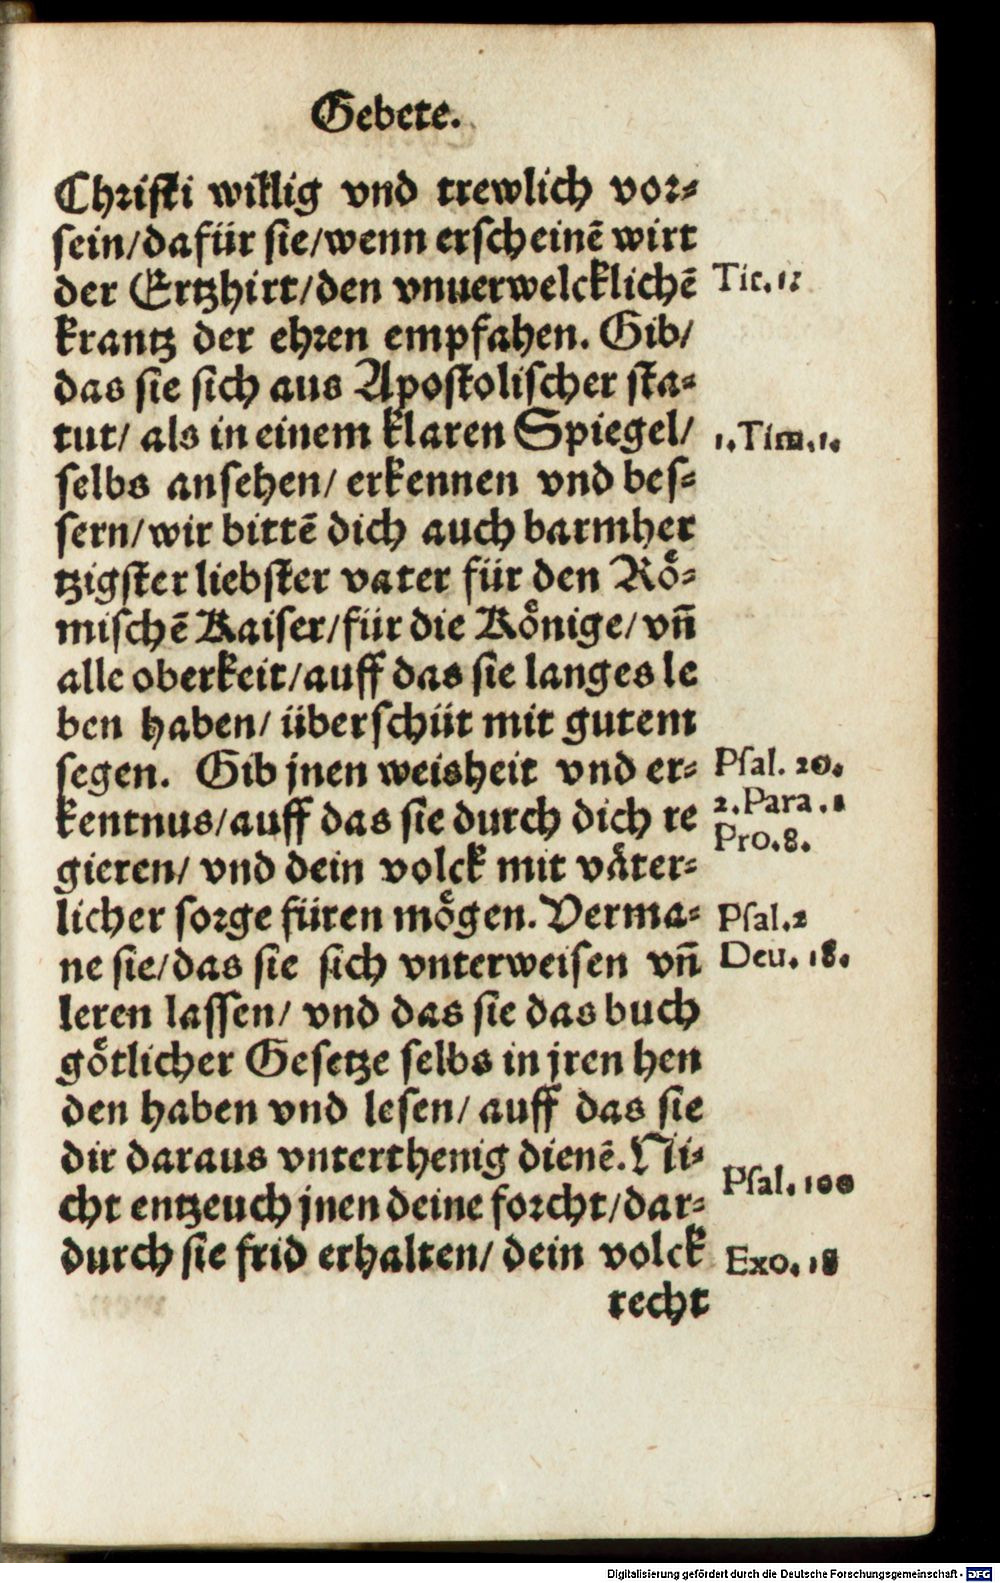 Gebete.
Chꝛiſti willig vnd trewlich voꝛ⸗
ſein/dafür ſie/wenn erſcheinē wirt
der Ertzhirt/den vnuerwelcklichē
Tit.1.
krantz der ehꝛen empfahen. Gib/
das ſie ſich aus Apoſtoliſcher ſta⸗
tut/ als in einem klaren Spiegel/
1.Tim.1.
ſelbs anſehen/ erkennen vnd beſ⸗
ſern/wir bittē dich auch barmher
tzigſter liebſter vater für den Rö⸗
miſchē Kaiſer/für die Könige/vñ
alle oberkeit/auff das ſie langes le
ben haben/ überſchüt mit gutem
ſegen. Gib jnen weisheit vnd er⸗
Pſal. 20.
kentnus/auff das ſie durch dich re
2.Para.1
Pro.8.
gieren/ vnd dein volck mit väter⸗
licher ſoꝛge füren mögen. Verma⸗
Pſal.2
ne ſie/das ſie ſich vnterweiſen vñ
Deu. 18.
leren laſſen/ vnd das ſie das buch
götlicher Geſetze ſelbs in jren hen
den haben vnd leſen/ auff das ſie
dir daraus vnterthenig dienē. Ni⸗
Pſal. 100
cht entzeuch jnen deine foꝛcht/dar⸗
durch ſie frid erhalten/ dein volck
Exo. 18
recht
Digitalisierung gefördert durch die Deutsche Forschungsgemeinschaft - DFG